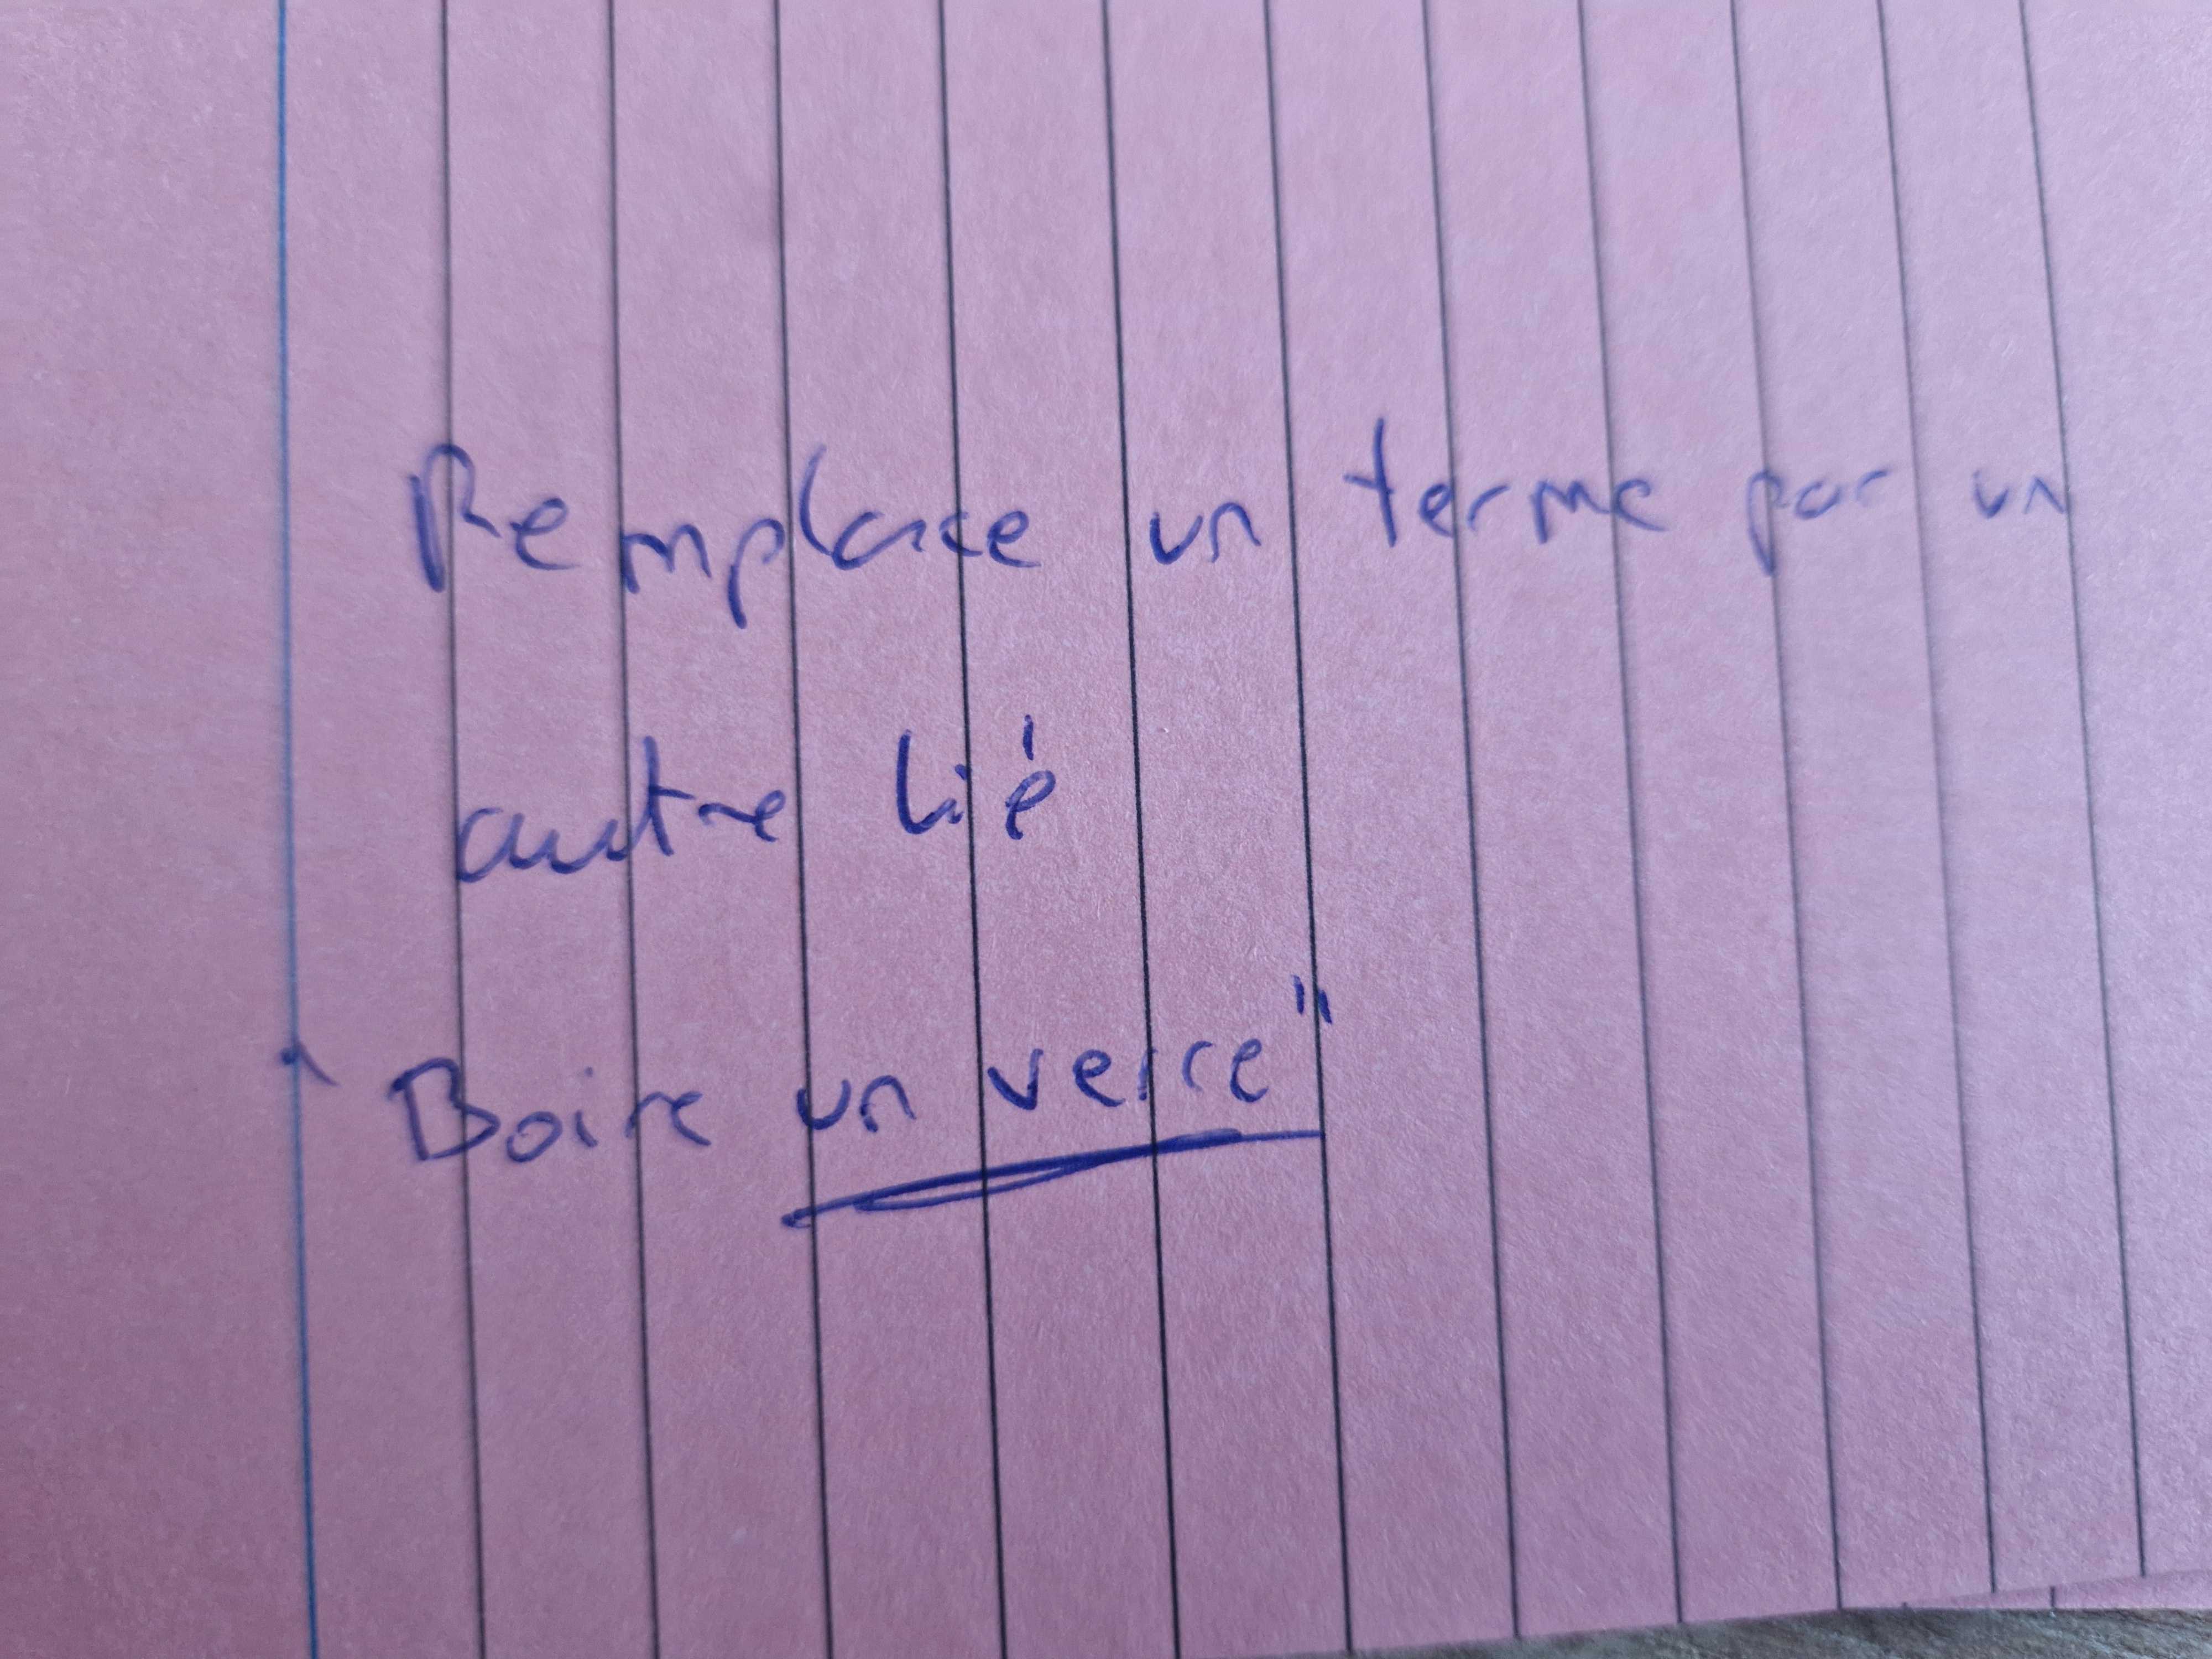 Remplace un terme par un
autre lié
"Boire un verre"